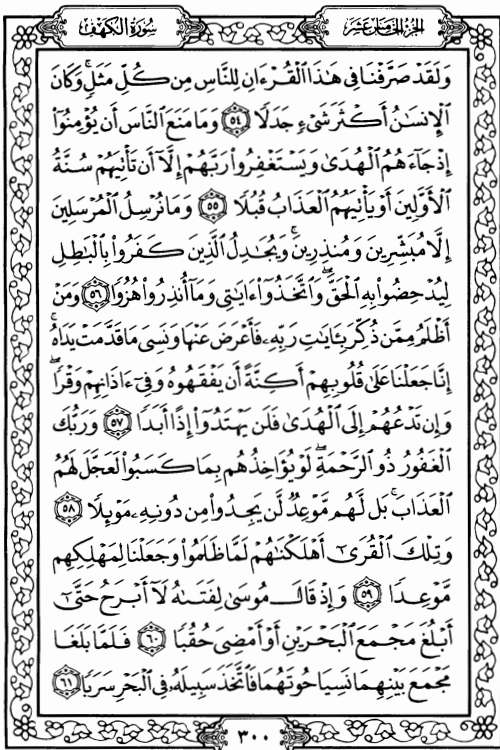 الجزء الخامس عشر
سورة الكهف
وَلَقَدْ صَرَّفْنَا فِى هَٰذَا ٱلْقُرْءَانِ لِلنَّاسِ مِن كُلِّ مَثَلٍۢ ۚ وَكَانَ
ٱلْإِنسَٰنُ أَكْثَرَ شَىْءٍۢ جَدَلًۭا ٥٤ وَمَا مَنَعَ ٱلنَّاسَ أَن يُؤْمِنُوٓا۟
إِذْ جَآءَهُمُ ٱلْهُدَىٰ وَيَسْتَغْفِرُوا۟ رَبَّهُمْ إِلَّآ أَن تَأْتِيَهُمْ سُنَّةُ
ٱلْأَوَّلِينَ أَوْ يَأْتِيَهُمُ ٱلْعَذَابُ قُبُلًۭا ٥٥ وَمَا نُرْسِلُ ٱلْمُرْسَلِينَ
إِلَّا مُبَشِّرِينَ وَمُنذِرِينَ ۚ وَيُجَٰدِلُ ٱلَّذِينَ كَفَرُوا۟ بِٱلْبَٰطِلِ
لِيُدْحِضُوا۟ بِهِ ٱلْحَقَّ ۖ وَٱتَّخَذُوٓا۟ ءَايَٰتِى وَمَآ أُنذِرُوا۟ هُزُوًۭا ٥٦ وَمَنْ
أَظْلَمُ مِمَّن ذُكِّرَ بِـَٔايَٰتِ رَبِّهِۦ فَأَعْرَضَ عَنْهَا وَنَسِىَ مَا قَدَّمَتْ يَدَاهُ ۚ
إِنَّا جَعَلْنَا عَلَىٰ قُلُوبِهِمْ أَكِنَّةً أَن يَفْقَهُوهُ وَفِىٓ ءَاذَانِهِمْ وَقْرًۭا ۖ
وَإِن تَدْعُهُمْ إِلَى ٱلْهُدَىٰ فَلَن يَهْتَدُوٓا۟ إِذًا أَبَدًۭا ٥٧ وَرَبُّكَ
ٱلْغَفُورُ ذُو ٱلرَّحْمَةِ ۖ لَوْ يُؤَاخِذُهُم بِمَا كَسَبُوا۟ لَعَجَّلَ لَهُمُ
ٱلْعَذَابَ ۚ بَل لَّهُم مَّوْعِدٌۭ لَّن يَجِدُوا۟ مِن دُونِهِۦ مَوْئِلًۭا ٥٨
وَتِلْكَ ٱلْقُرَىٰٓ أَهْلَكْنَٰهُمْ لَمَّا ظَلَمُوا۟ وَجَعَلْنَا لِمَهْلِكِهِم
مَّوْعِدًۭا ٥٩ وَإِذْ قَالَ مُوسَىٰ لِفَتَىٰهُ لَآ أَبْرَحُ حَتَّىٰٓ
أَبْلُغَ مَجْمَعَ ٱلْبَحْرَيْنِ أَوْ أَمْضِىَ حُقُبًۭا ٦٠ فَلَمَّا بَلَغَا
مَجْمَعَ بَيْنِهِمَا نَسِيَا حُوتَهُمَا فَٱتَّخَذَ سَبِيلَهُۥ فِى ٱلْبَحْرِ سَرَبًۭا ٦١
٣٠٠